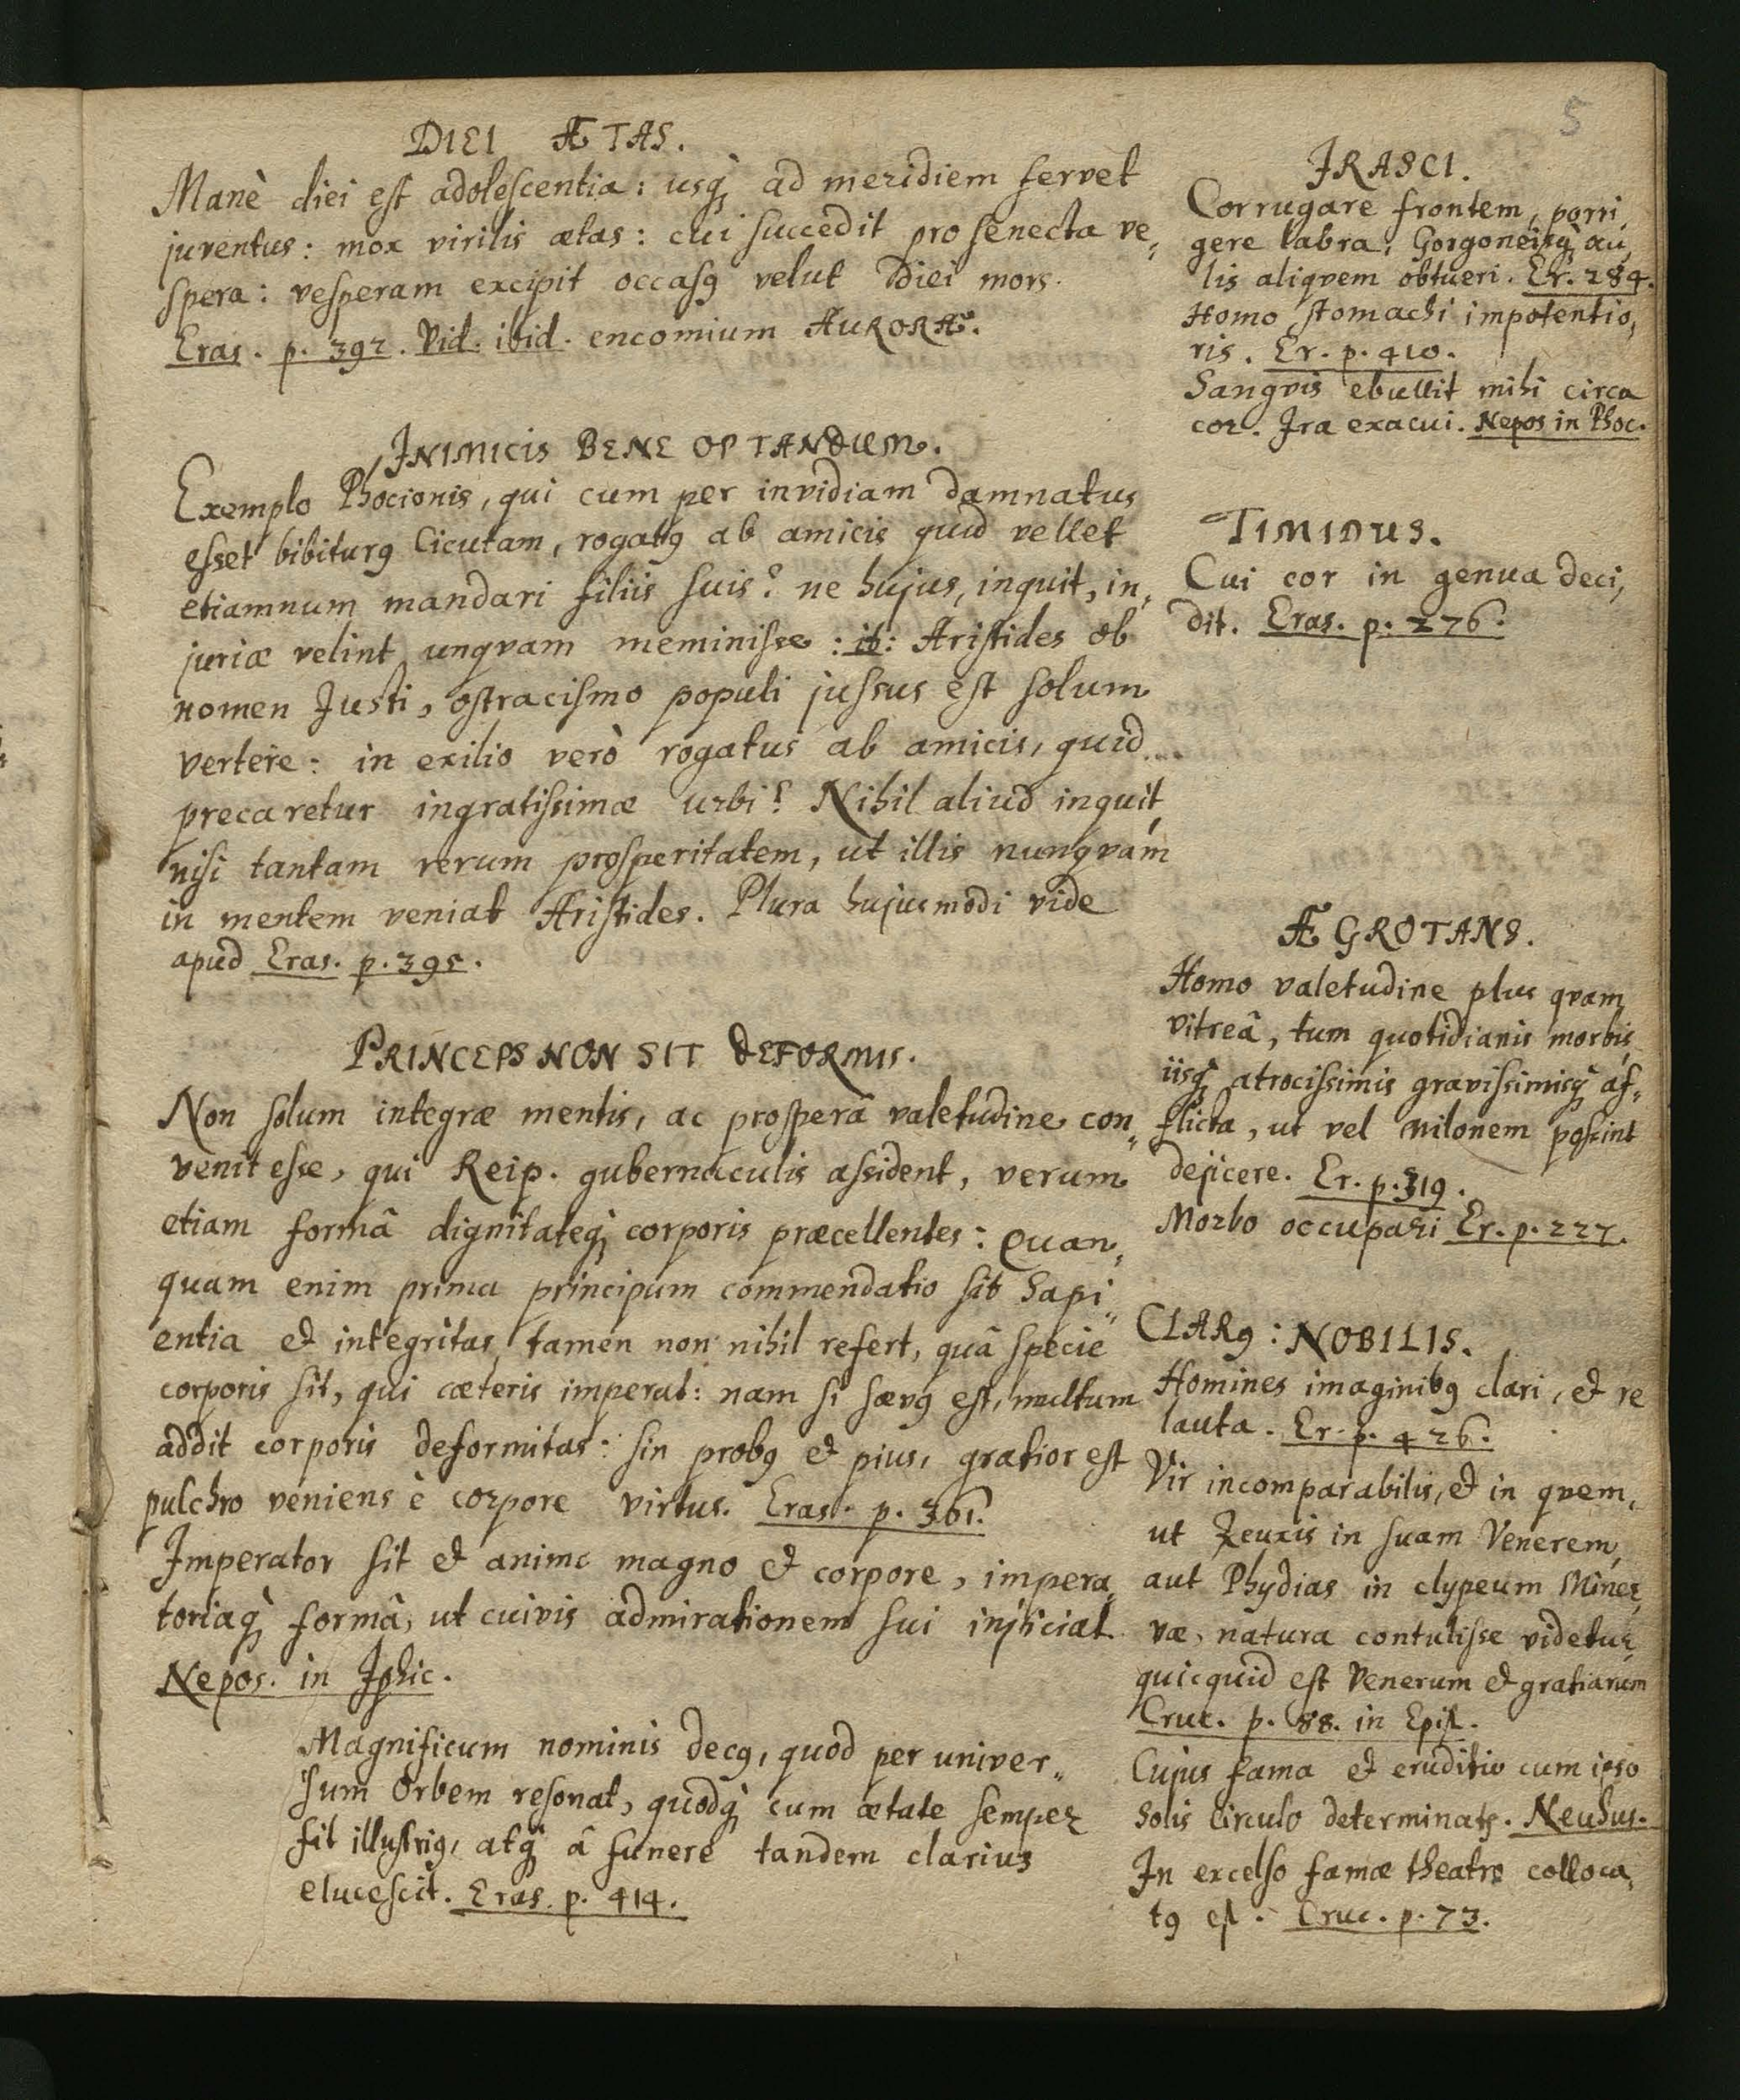 5
DIEI ÆTAS.
Manè diei est adolescentia: usq; ad meridiem fervet
juventus: mox virilis ætas: cui succedit pro senecta ve,,
spera: vesperam excipit occasꝯ velut diei mors.
Eras. p. 392. Vid. ibid. encomium AURORÆ.
INIMICIS BENE OPTANDUM.
Exemplo Phocionis, qui cum per invidiam damnatus
esset bibiturꝯ Cicutam, rogatꝯ ab amicis quid vellet
etiamnum mandari filiis suis? ne hujus, inquit, in,,
juriæ velint unqvam meminisse: it: Aristides ob
nomen Justi, ostracismo populi jussus est solum
vertere: in exilio verò rogatus ab amicis, quid
precaretur ingratissimæ urbi? Nihil aliud inquit,
nisi tantam rerum prosperitatem, ut illis nunqvam
in mentem veniat Aristides. Plura hujusmodi vide
apud Eras. p. 395.
PRINCEPS NON SIT DEFORMIS.
Non solum integræ mentis, ac prosperâ valetudine con,,
venit esse, qui Reip. gubernaculis assident, verum
etiam formâ dignitateq; corporis præcellentes: Quan,,
quam enim prima principum commendatio sit Sapi,,
entia et integritas, tamen non nihil refert, quâ specie
corporis sit, qui cæteris imperat: nam si sævꝯ est, multum
addit corporis deformitas: sin probꝯ et pius, gratior est
pulchro veniens è corpore virtus. Eras. p. 361.
Imperator sit et animo magno et corpore, impera,,
toriaq; formâ, ut cuivis admirationem sui injiciat
Nepos. in Iphic.
Magnificum nominis decꝯ, quod per univer,,
sum Orbem resonat, quodq; cum ætate semper
fit illustriꝯ, atq; â funere tandem clarius
elucescit. Eras. p. 414.
IRASCI.
Corrugare frontem, porri,,
gere labra; Gorgoneisq; au,,
lis aliqvem obtueri. Er. 284.
Homo stomachi impotentio,,
ris. Er. p. 410.
Sangvis ebullit mihi circa
cor. Ira exacui. Nepos in Phoc.
TIMIDUS.
Cui cor in genua deci,,
dit. Eras. p. 276.
ÆGROTANS.
Homo valetudine plus qvam
vitreâ, tum quotidianis morbis,
iisq; atrocissimis gravissimisq; af,,
flicta, ut vel Milonem possint
dejicere. Er. p. 319.
Morbo occupari Er. p. 227.
CLARꝯ: NOBILIS.
Homines imaginibꝯ clari, et re
lauta. Er. p. 426.
Vir incomparabilis, et in qvem,
ut Zeuxis in suam Venerem,
aut Phydias in clypeum Miner,,
væ, natura contulisse videtur,
quicquid est Venerum et gratiarum
Cruc. p. 88. in Epist.
Cujus fama et eruditio cum ipso
Solis circulo determinatr. Neuhus.
In excelso famæ theatro colloca,,
tꝯ est. Cruc. p. 73.